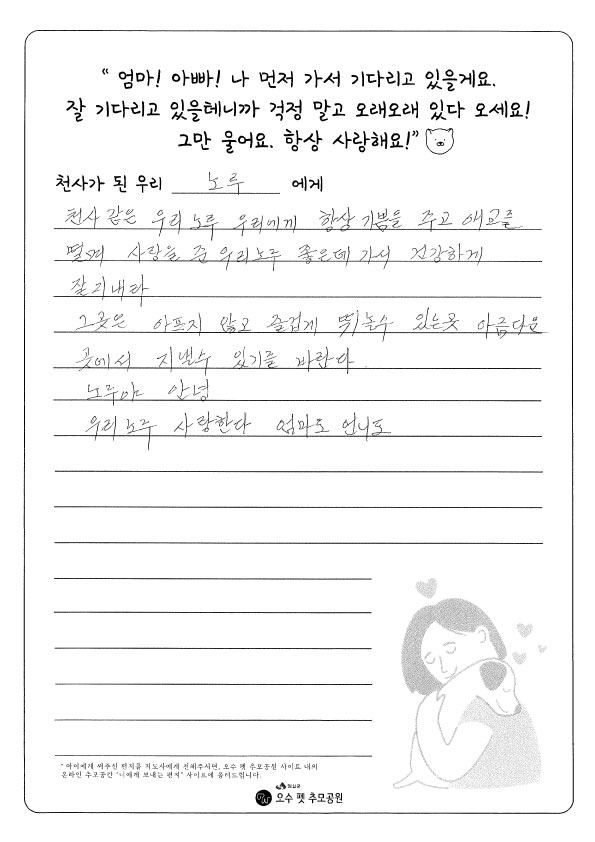 “ 엄마! 아빠! 나 먼저 가서 기다리고 있을게요.
잘 기다리고 있을테니까 걱정 말고 오래오래 있다 오세요!
그만 울어요. 항상 사랑해요!”
천사가 된 우리 노루 에게
천사 같은 우리 노루 우리에게 항상 기쁨을 주고 애교를
떨며 사랑을 준 우리노루 좋은데 가서 건강하게
잘 지내라
그곳은 아프지 않고 즐겁게 뛰놀수 있는곳 아름다운
곳에서 지낼수 있기를 바란다.
노루야 안녕
우리 노루 사랑한다 엄마도 언니도
* 아이에게 써주신 편지를 지도사에게 전해주시면, 오수 펫 추모공원 사이트 내의
온라인 추모공간 "너에게 보내는 편지" 사이트에 올려드립니다.
임실군
오수 펫 추모공원